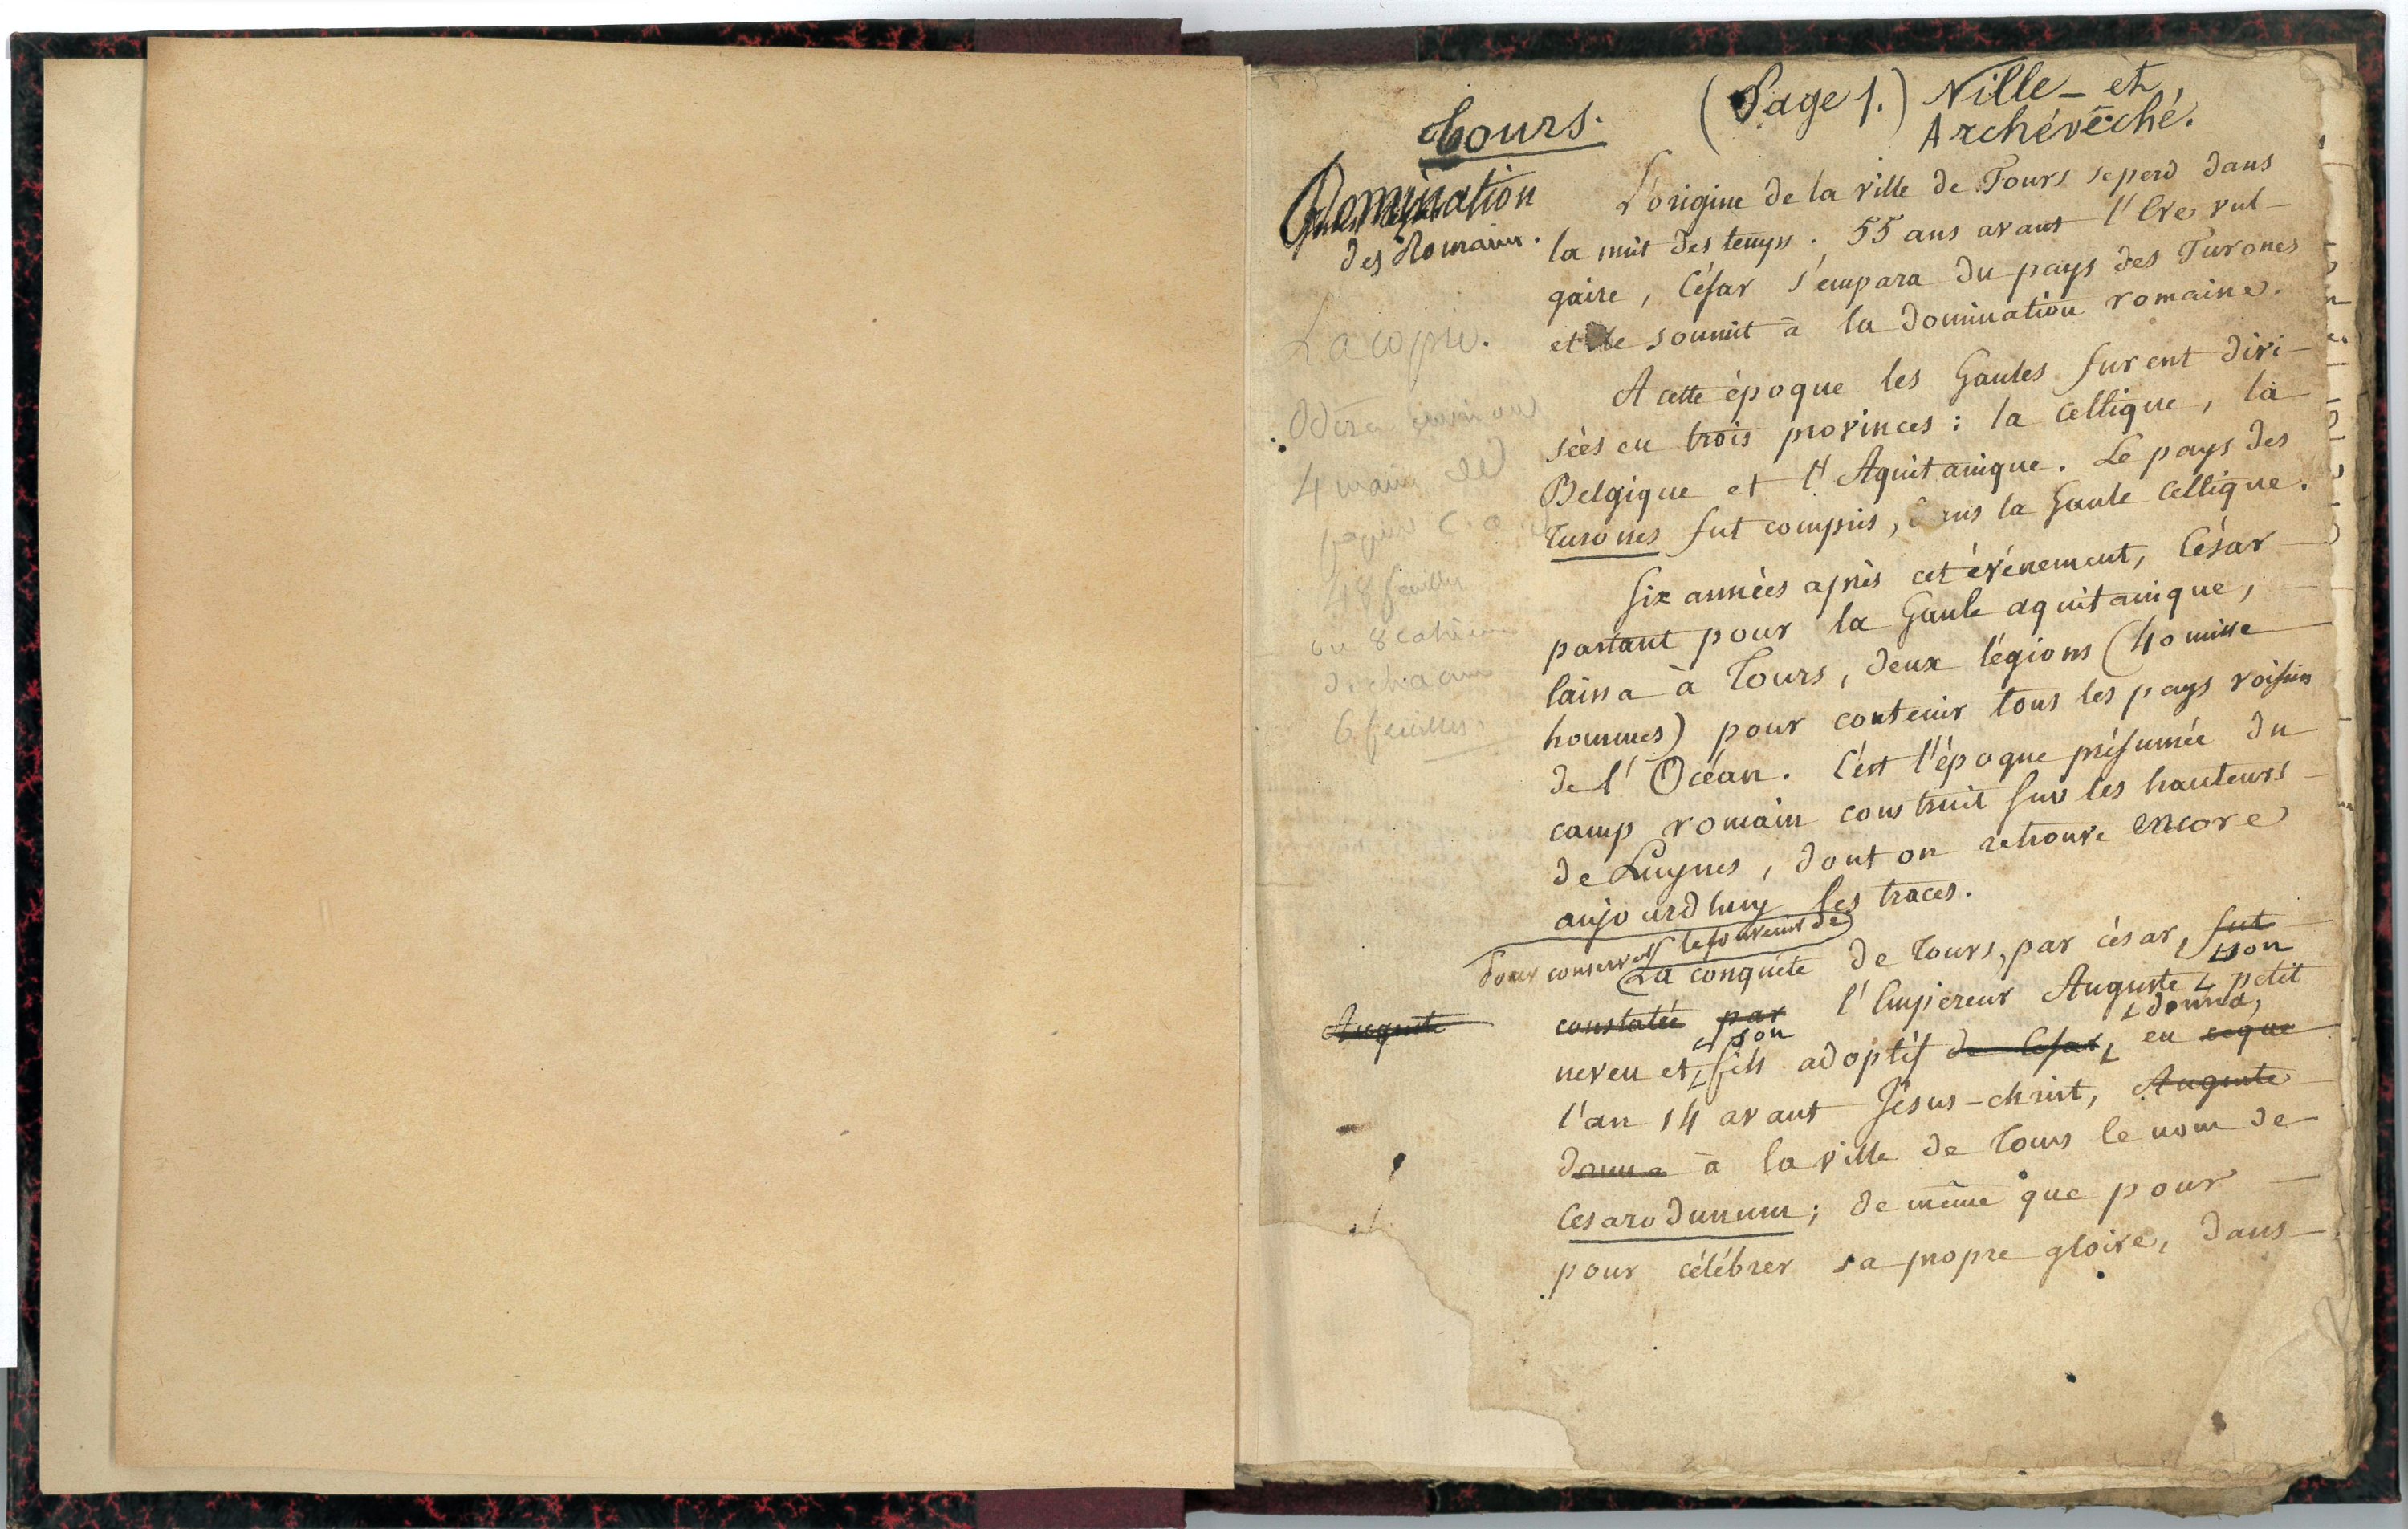 Tours.
(Page 1.) Ville - et
Archévêché.
Domination
des Romains.
L'origine de la ville de Tours se perd dans
la nuit des temps. 55 ans avant l'Ere vul-
gaire, César s'empara du pays des Turones
et le soumit à la domination romaine.
A cette époque les Gaules furent divi-
sées en trois provinces : la celtique, la
Belgique et l'Aquitanique. Le pays des
Turones fut compris, dans la Gaule Celtique.
Six années après cet événement, César
partant pour la Gaule aquitainique,
laissa à Tours, deux légions (40 mille
hommes) pour contenir tous les pays voisins
de l'Océan. C'est l'époque présumée du
camp romain construit sur les hauteurs
de Luynes, dont on retrouve encore
aujourdhuy les traces.
Pour conserver le souvenir de
La conquête de Tours, par césar, fut
son
constatée par l'Empereur Auguste petit
Auguste
son donna,
neveu et fils adoptif de César, en ce que
l'an 14 avant Jésus-christ, Auguste
donna à la ville de Tours le nom de
Cesarodunum ; de même que pour
pour célébrer sa propre gloire, dans
La copie.
4 main de
papier
48 feuilles
ou 8 cahiers
de chacun
6 feuilles